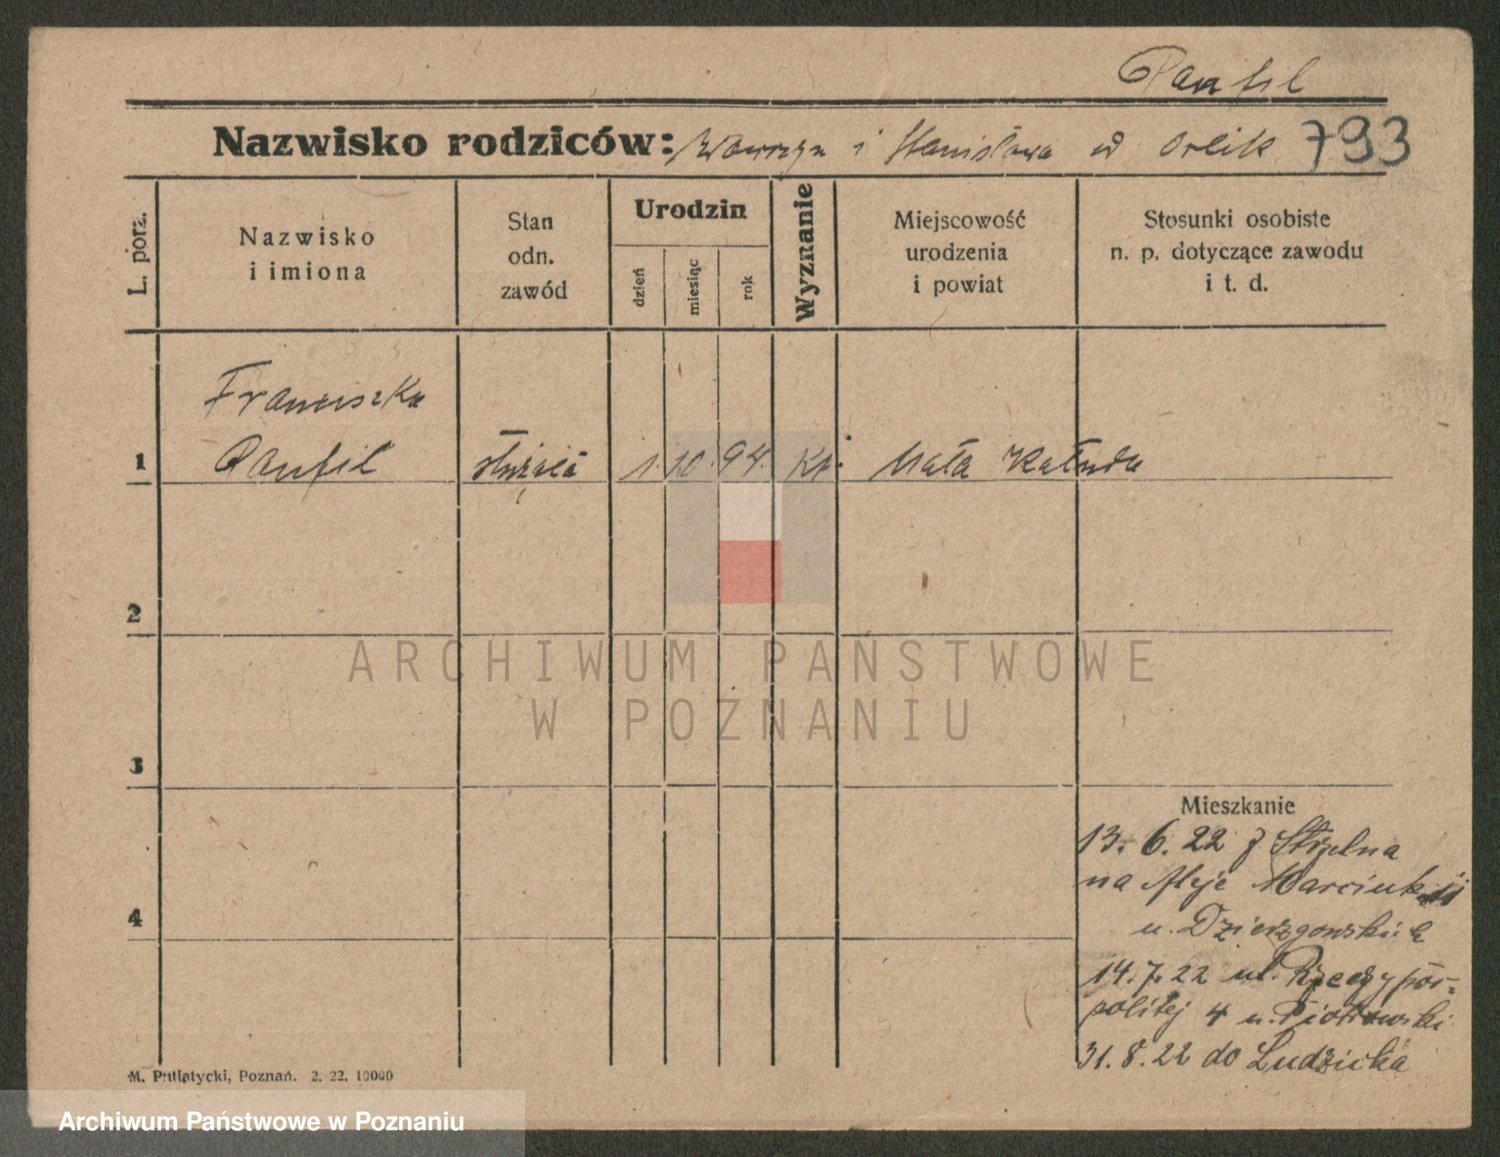 Panfil
Nazwisko rodziców: Wawrzyn i Stanisława d Orlik 793
L. porz.
Nazwisko
i imiona
Stan
odn.
zawód
Urodzin
dzień
miesiąc
rok
Wyznanie
Miejscowość
urodzenia
i powiat
Stosunki osobiste
n. p. dotyczące zawodu
i t. d.
Franciszka
1 Panfil służąca 1. 10. 94. kt. Mała
2
3
4
Mieszkanie
13. 6. 22 z Strzelna
na Aleje Marcink. 11
u. Dzierzgowskich
14. 7. 22 ul. Rzeczypos-
politej 4 u. Piotrowski
31. 8. 22 do Ludzicka
M. Putiatycki, Poznań. 2. 22. 10000
ARCHIWUM PAŃSTWOWE
W POZNANIU
Archiwum Państwowe w Poznaniu